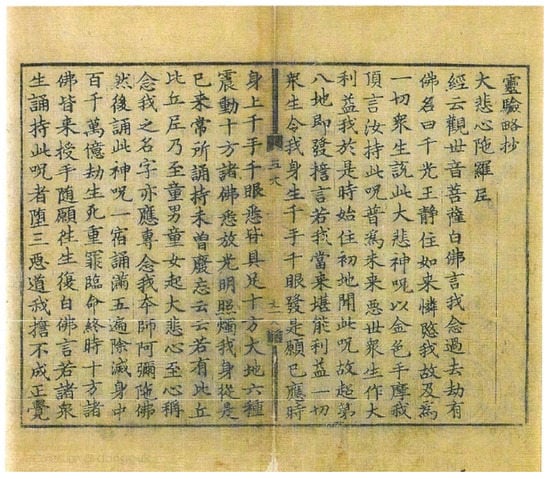 靈驗略抄
大悲心陁羅尼
經云觀世音菩薩白佛言我念過去劫有
佛名曰千光王靜住如來憐愍我故及爲
一切衆生說此大悲神呪以金色手摩我
頂言汝持此呪普爲未來惡世衆生作大
利益我於是時始住初地聞此呪故超第
八地即發擔言若我當來堪能利益一切
衆生令我身生千手千眼發是願已應時
身上千手千眼悉皆具足十方大地六種
震動十方諸佛悉放光明照燭我身從是
已來常所誦持未曾廢忘云云若有比丘
比丘尼乃至童男童女起大悲心至心稱
念我之名字亦應專念我本師阿彌陁佛
然後誦此神呪一宿誦滿五遍除滅身中
百千萬億劫生死重罪臨命終時十方諸
佛皆來授手隨願徃生復白佛言若諸衆
生誦持此呪者墮三惡道我擔不成正覺